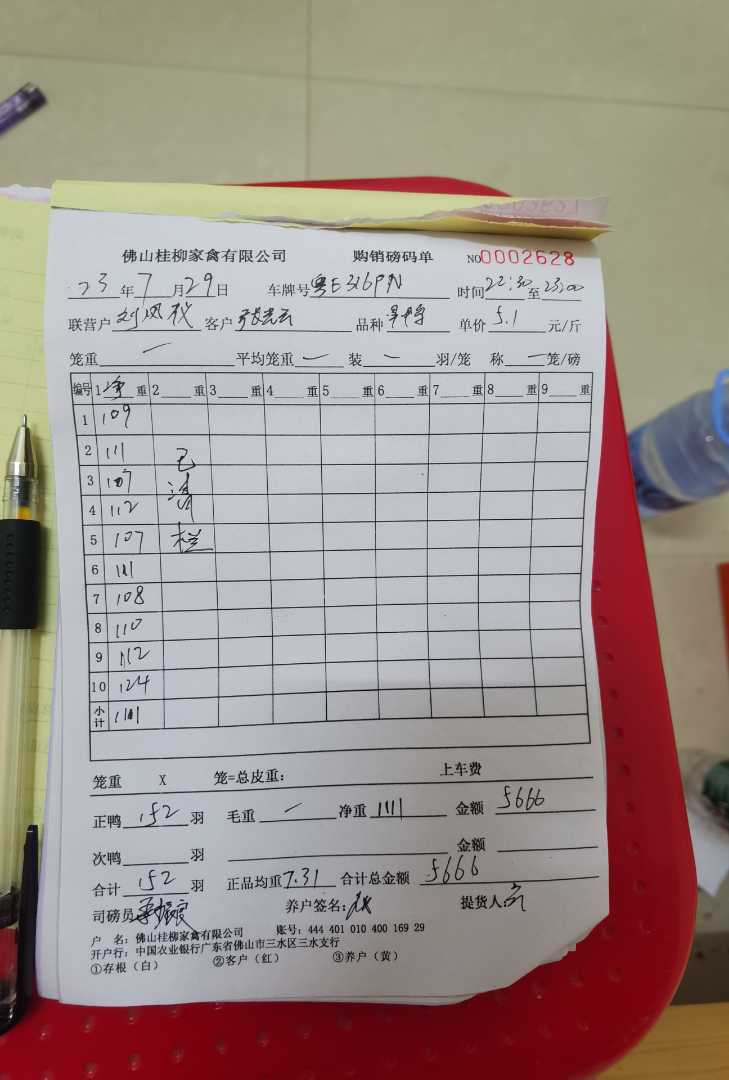 佛山桂柳家禽有限公司 购销磅码单 NO0002628
23年7月29日 车牌号粤E326PN 时间22:30至23:00
联营户 刘凤 客户 品种 单价5.1元/斤
笼重 一 平均笼重 一 装 一 羽/笼 称 一 笼/磅
编号 1净重 2 重 3 重 4 重 5 重 6 重 7 重 8 重 9 重
1 109
2 111 已
3 107 清
4 112
5 107 栏
6 111
7 108
8 110
9 112
10 124
小计 1111
笼重 X 笼=总皮重: 上车费
正鸭 152 羽 毛重 一 净重 1111 金额 5666
次鸭 羽 金额
合计 152 羽 正品均重7.31 合计总金额 5666
司磅员 养户签名: 提货人:
户 名: 佛山桂柳家禽有限公司 账号: 444 401 010 400 169 29
开户行: 中国农业银行广东省佛山市三水区三水支行
①存根(白) ②客户(红) ③养户(黄)